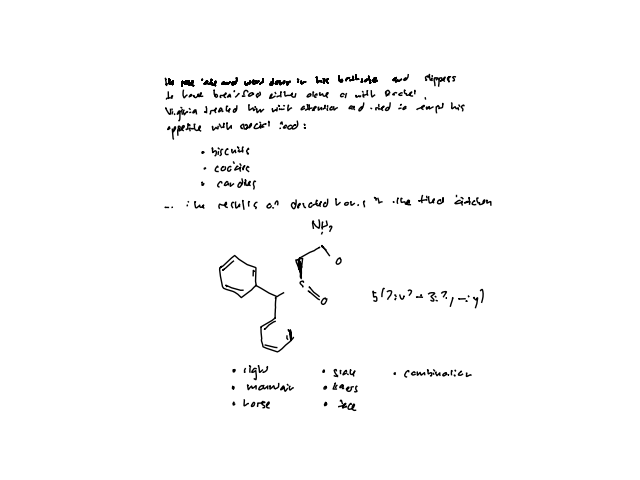 He rose late and went down in his bathrobe and slippers
to have breakfast either alone or with Rachel.
Virginia treated him with attention and tried to tempt his
appetite with special food:
• biscuits
• cookies
• candies
... the results of devoted hours in the tiled kitchen
NH₂
O
S
O
• right
• mountain
• horse
• skate
• face
• combination